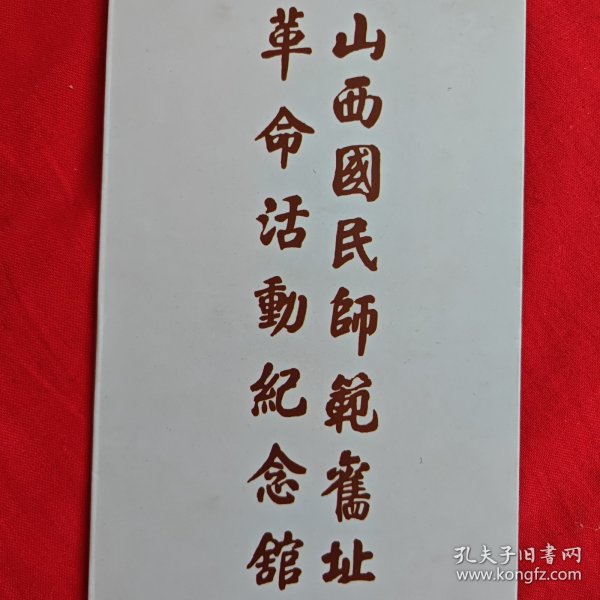 山西國民師範舊址
革命活動紀念舘
孔夫子旧書网
www.kongfz.com